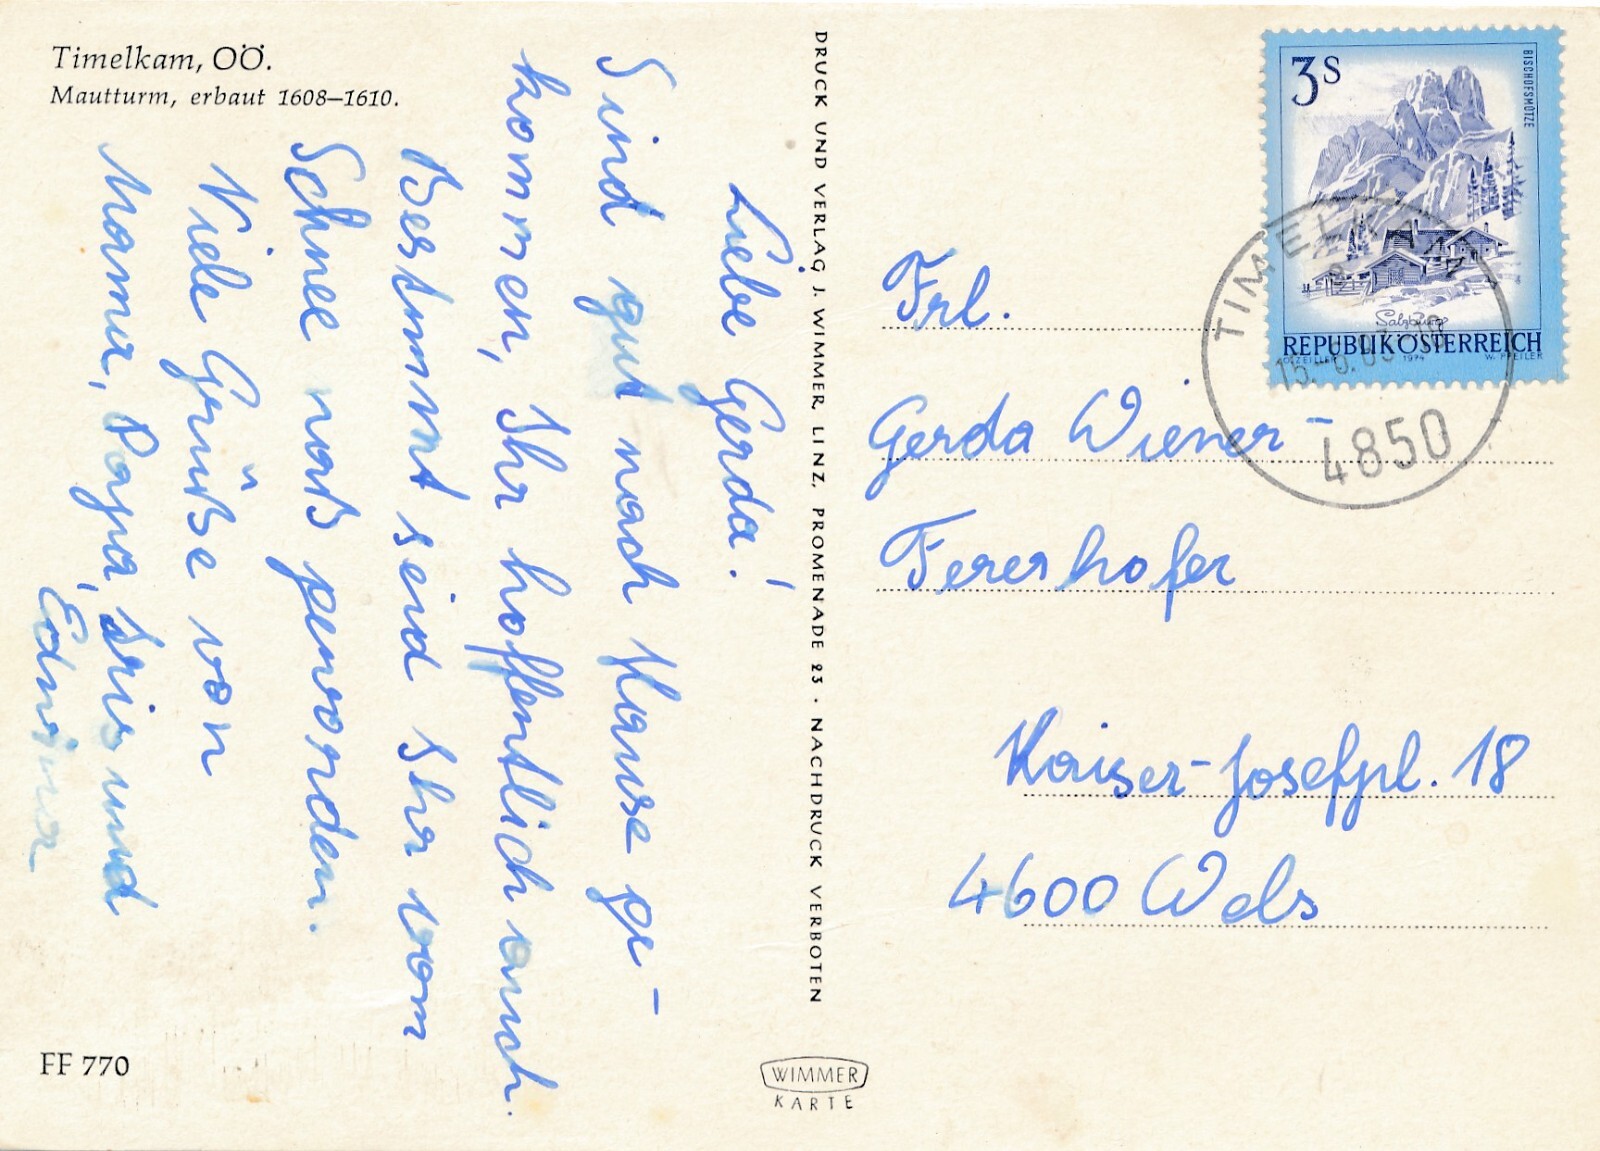 Timelkam, OÖ.
Mautturm, erbaut 1608–1610.
Liebe Gerda!
Sind gut nach Hause ge-
kommen, Ihr hoffentlich auch.
Bestimmt seid Ihr vom
Schnee naß geworden.
Viele Grüße von
Mama, Papa, Iris und
Edwina
FF 770
DRUCK UND VERLAG J. WIMMER, LINZ, PROMENADE 23 · NACHDRUCK VERBOTEN
WIMMER
KARTE
3S
BISCHOFSMÜTZE
Salzburg
REPUBLIK ÖSTERREICH
1974 W. PFEILER
TIMELKAM
4850
Frl.
Gerda Wiener-
Fererhofer
Kaiser-Josefpl. 18
4600 Wels